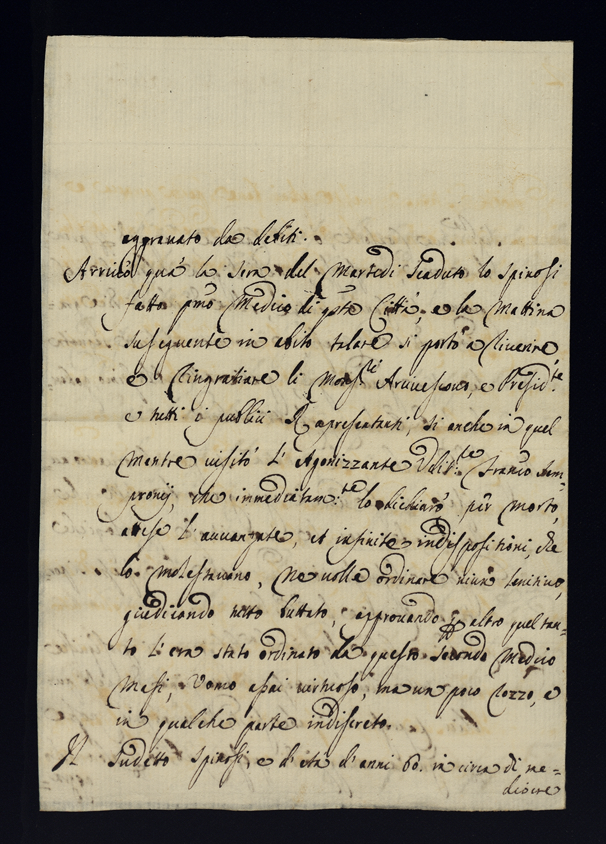 aggravato da debiti.
Arrivò quà la sera del Martedì scaduto lo Spinosi
fatto pmo Medico di qsta Città, e la Mattina
susseguente in abito talare si portò a riverire,
e ringratiare li Monsri Arcivescovo, e Presidte
e tutti i publici Rapresentanti, si anche in quel
mentre visitò l'Agonizzante Franco Sem-
pronij, che immediatamte lo dichiarò per morto,
attese l'avanzate, et infinite indispositioni, che
lo molestavano, ne volle ordinare niun lenitivo,
giudicando tutto buttato, approvando altro quel tan-
to l'era stato ordinato da questo secondo Medico
Masi, Uomo assai virtuoso, ma un poco rozzo, e
in qualche parte indiscreto.
Il sudetto Spinosi e d'età d'anni 60. in circa di me-
diocre